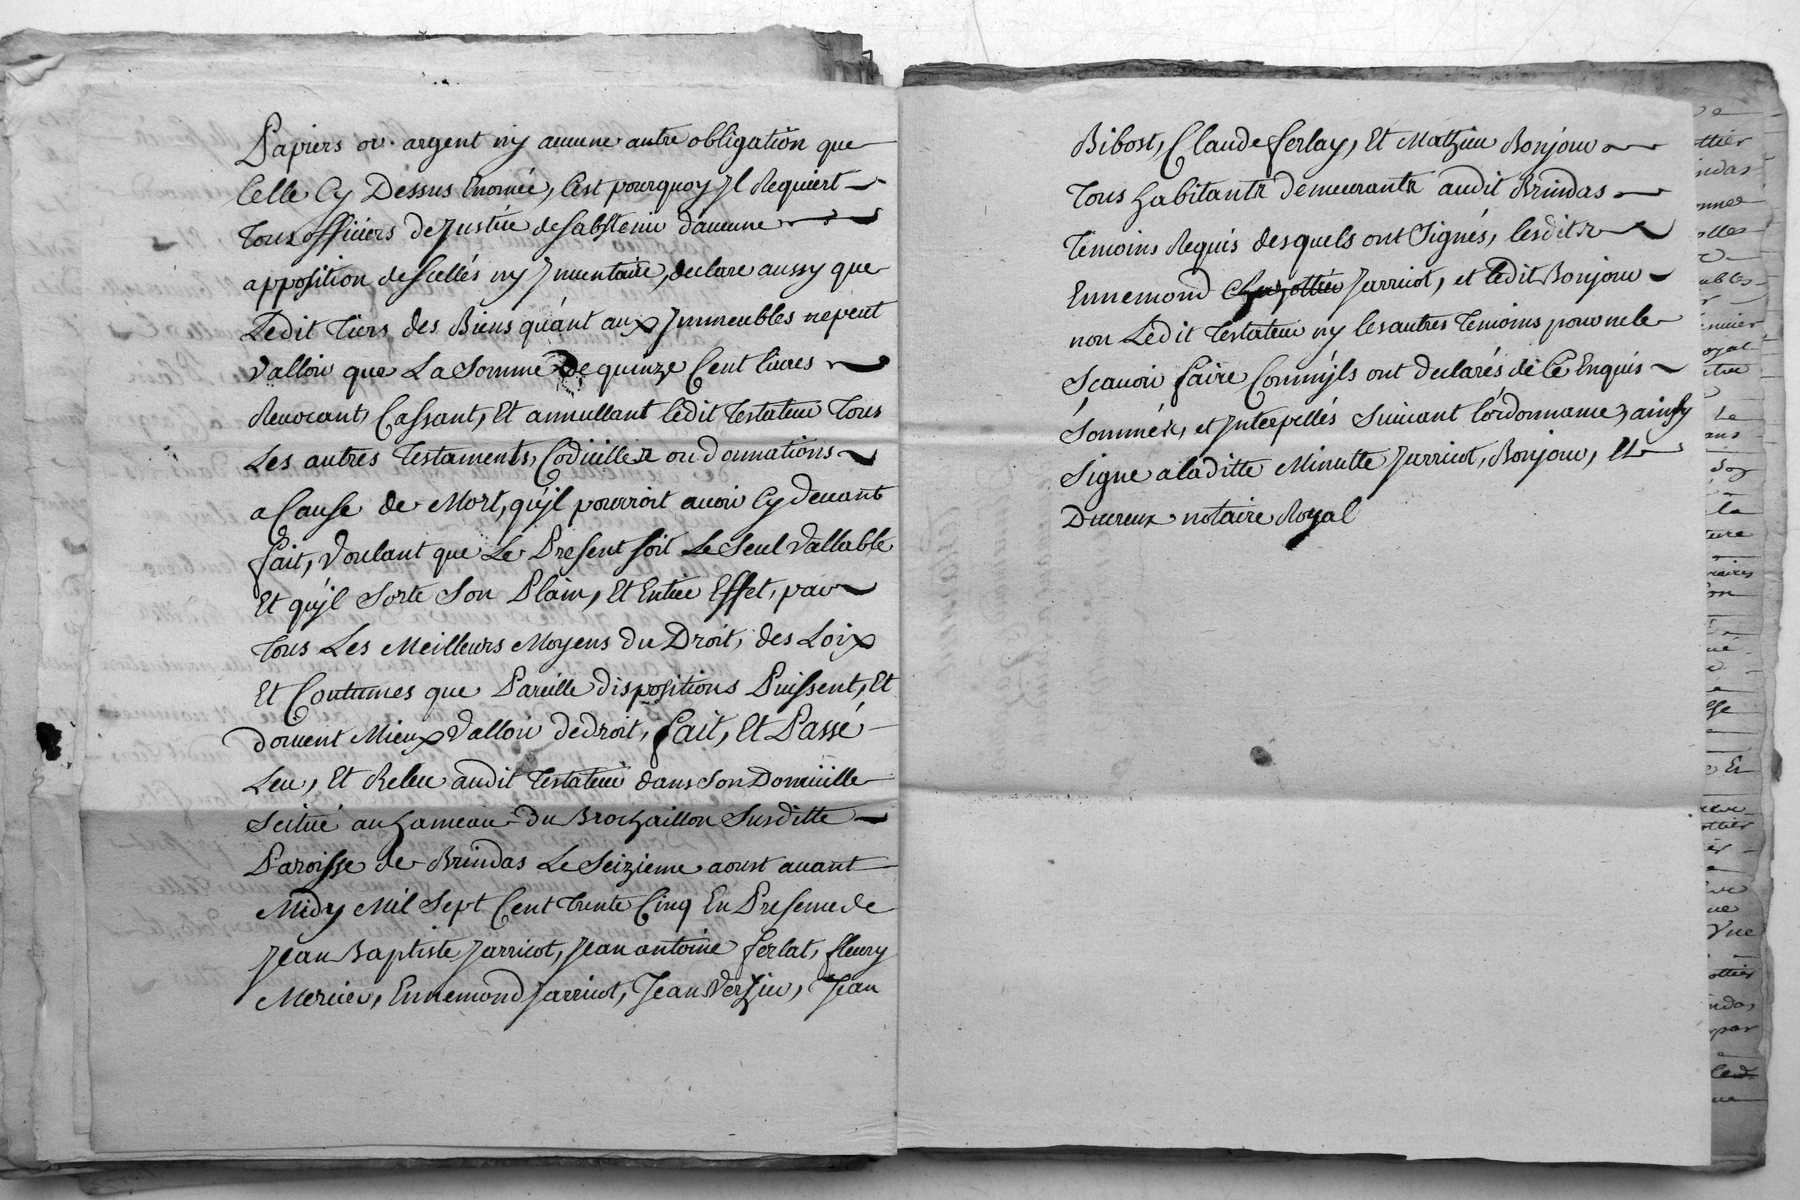 Papiers or argent ny aucune autre obligation que
Celle Cy Dessus Enomée, C'est pourquoy Jl Requiert
Tous officiers de Justice de sabstenir d'aucune
apposition de scellés ny Jnventaire, declare aussy que
Ledit Tiers des Biens quánt aux Jmmeubles ne peut
Valloir que La Somme De quinze Cent livres
Revocant, Cassant, Et annullant ledit Testateur Tous
Les autres Testaments, Codicilles ou donnations
a Cause de Mort, qu'jl pourroit avoir Cy devant
fait, Voulant que Le Present soit Le Seul Vallable
Et qu'jl Sorte Son Plain, Et Entier Effet, par
Tous Les Meilleurs Moyens du Droit, des Loix
Et Coutumes que Pareille dispositions Puissent, Et
doivent Mieux Valloir de droit, fait, Et Passé
Leu, Et Releu audit Testateur dans Son Domicille
Scitué au hameau du Brochaillon Susditte
Paroisse de Brindas Le Seizieme aoust avant
Midy Mil Sept Cent Trente Cinq En Presence de
Jean Baptiste Jarricot, Jean antoine ferlat, fleury
Mercier, Ennemond Jarricot, Jean Verzieu, Jean
Bibost, Claude ferlay, Et Mathieu Bonjour
Tous habitants demeurants audit Brindas
Temoins Requis desquels ont Signés, lesdits
Ennemond Chazottier Jarricot, et ledit Bonjour
non Ledit Testateur ny les autres Temoins pour ne le
Scavoir faire Comm'jls ont declarés de Ce Enquis
Sommés, et Jnterpellés Suivant l'ordonnance, ainsy
Signe a laditte Minutte Jarricot, Bonjour, Et
Ducreux notaire Royal